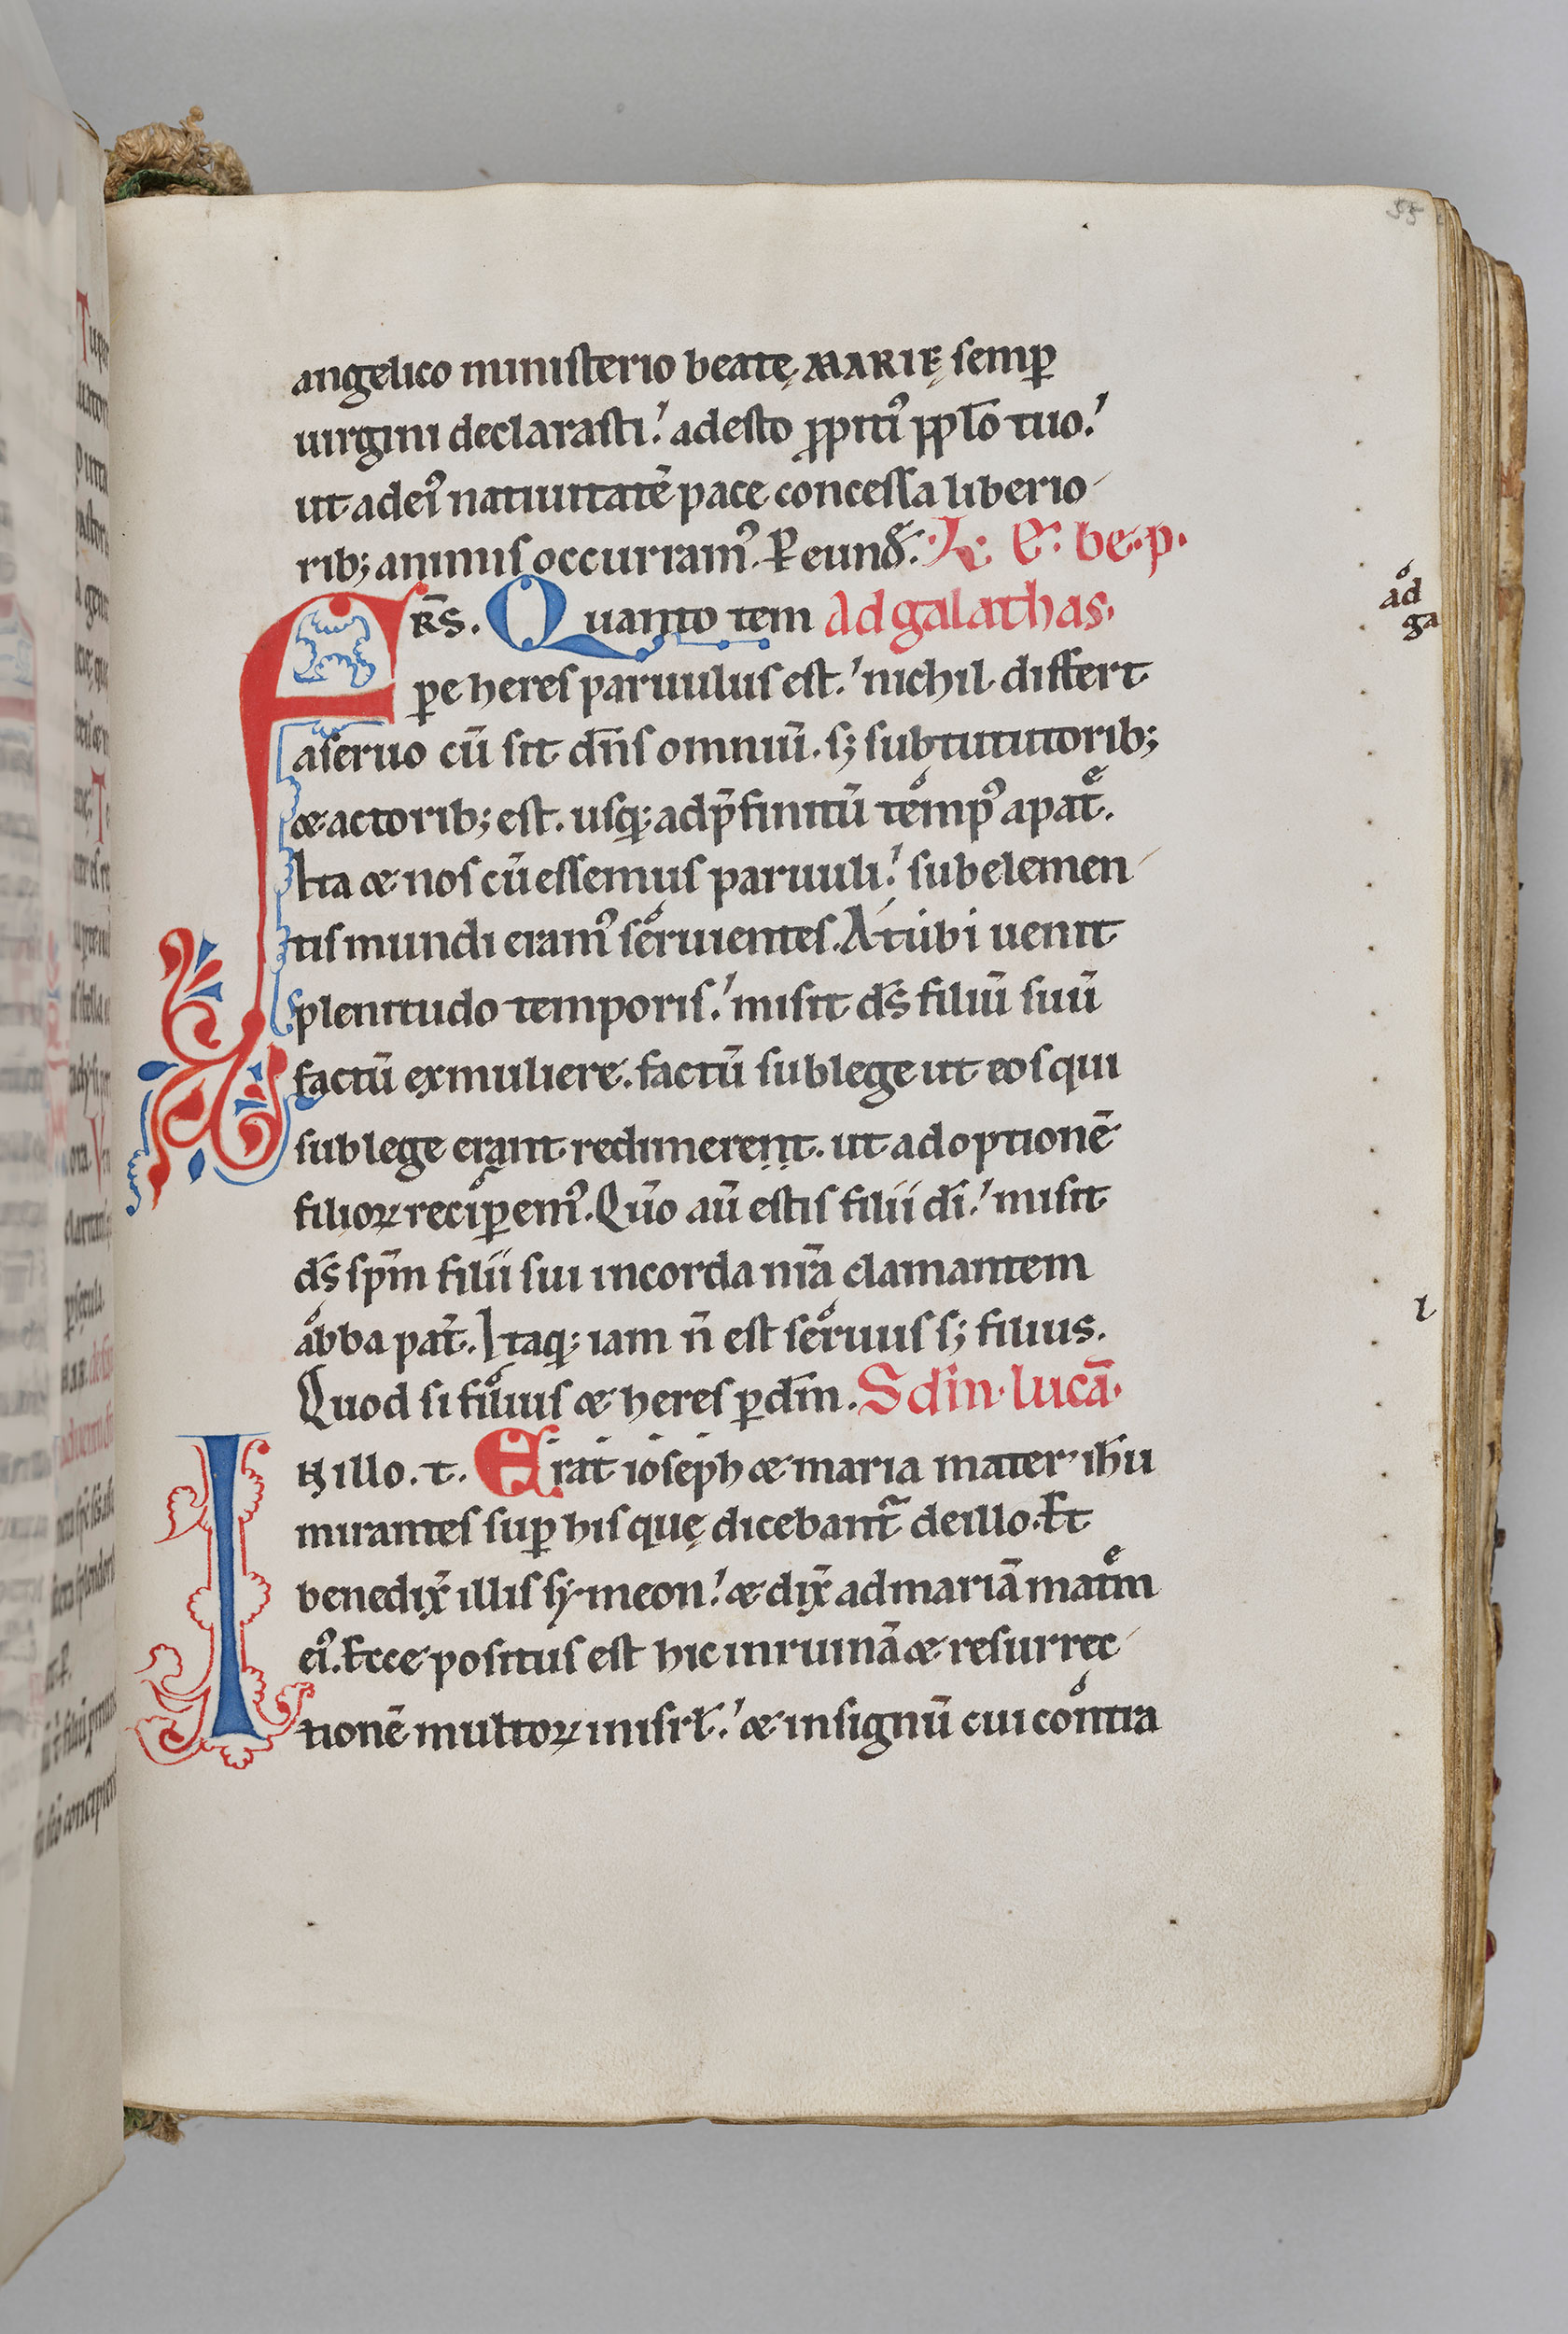 55
angelico ministerio beatę MARIĘ semꝑ
uirgini declarasti! adesto ꝓpitiꝰ pp̄lo tuo!
ut ad eiꝰ natiuitatē pace concessa liberio
rib; animis occurramꝰ. P eund̄. L. E. be. p.
FRS̄. Quanto tem Ad galathas.
ꝑe heres paruulus est! nichil differt
a seruo cū sit dn̄s omniū. s; sub tutatorib;
& actorib; est. usq; ad p̄finitū tempꝰ a pat̄e.
Ita & nos cū essemus paruuli! sub elemen
tis mundi eramꝰ seruientes. At ubi uenit
plenitudo temporis! misit ds̄ filiū suū
factū ex muliere. factū sub lege ut eos qui
sub lege erant redimerent. ut adoptionē
filioꝝ reciꝑemꝰ. Qūo aū estis filii dī! misit
ds̄ sp̄m filii sui in corda nr̄a clamantem
abba pat̄. Itaq; iam n̄ est seruus s; filius.
Quod si filius & heres ꝑ dm̄. Sc̄dm lucā.
IN illo. t. Erat ioseph & maria mater ih̄u
mirantes suꝑ his quę dicebant̄ de illo. Et
benedix̄ illis symeon! & dix̄ ad mariā mat̄em
eiꝰ. Ecce positus est hic in ruinā & resurrec
tionē multoꝝ in isrl̄! & in signū cui contra
ad
ga
l